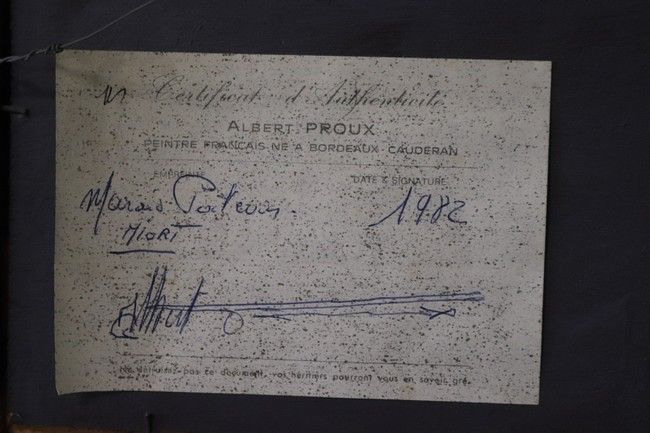 Certificat d'Authenticité
ALBERT PROUX
PEINTRE FRANCAIS NE A BORDEAUX-CAUDERAN
EMPREINTE
DATE & SIGNATURE
Marais Poitevin
1982
NIORT
Ne détruisez pas ce document, vos héritiers pourront vous en savoir gré.